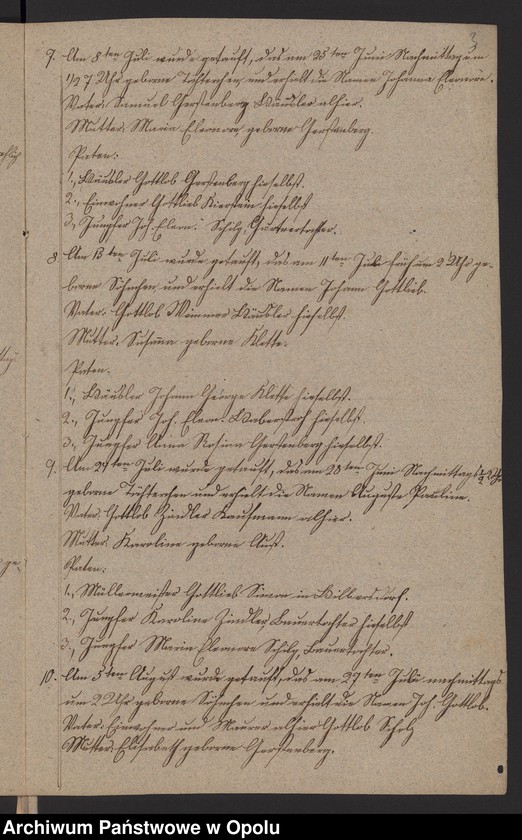 3
7. Am 8ten Juli wurde getauft, das am 28ten Juni Nachmittag um
1/2 7 Uhr geborne Töchterchen, und erhielt die Namen Johanna Eleonore.
Vater: Samuel Gerstenberg Häusler alhier.
Mutter: Maria Eleonora geborne Gerstenberg.
Paten:
1., Häusler Gottlob Gerstenberg hieselbst.
2., Einwohner Gottlieb Kierstein hieselbst
3., Jungfer Joh. Eleon: Scholz, Gärtnertochter.
8 Am 13ten Juli wurde getauft, das am 11ten Juli früh um 2 Uhr ge-
borne Söhnchen und erhielt die Namen Johann Gottlieb.
Vater: Gottlob Wimmer Häusler hieselbst.
Mutter: Susanna geborne Klette.
Paten.
1., Häusler Johann George Klette hieselbst.
2., Jungfer Joh. Eleon: hieselbst.
3., Jungfer Anna Rosina Gerstenberg hieselbst.
9. Am Juli wurde getauft, das am 28ten Juni Nachmittags 1/2 2 Uhr
geborne Töchterchen und erhielt die Namen Auguste Pauline.
Vater: Gottlob Zindler Kaufmann alhier.
Mutter: Karoline geborne Aust.
Paten:
1., Müllermeister Gottlieb Simon in
2., Jungfer Karoline Zindler, Bauertochter hieselbst
3., Jungfer Maria Eleonore Scholz, Bauertochter.
10. Am 5ten August wurde getauft, das am 27ten Juli nachmittags
um 2 Uhr geborne Söhnchen und erhielt die Namen Joh. Gottlob.
Vater: Einwohner und Maurer alhier Gottlob Scholz
Mutter: Elisabeth geborne Gerstenberg.
Archiwum Państwowe w Opolu